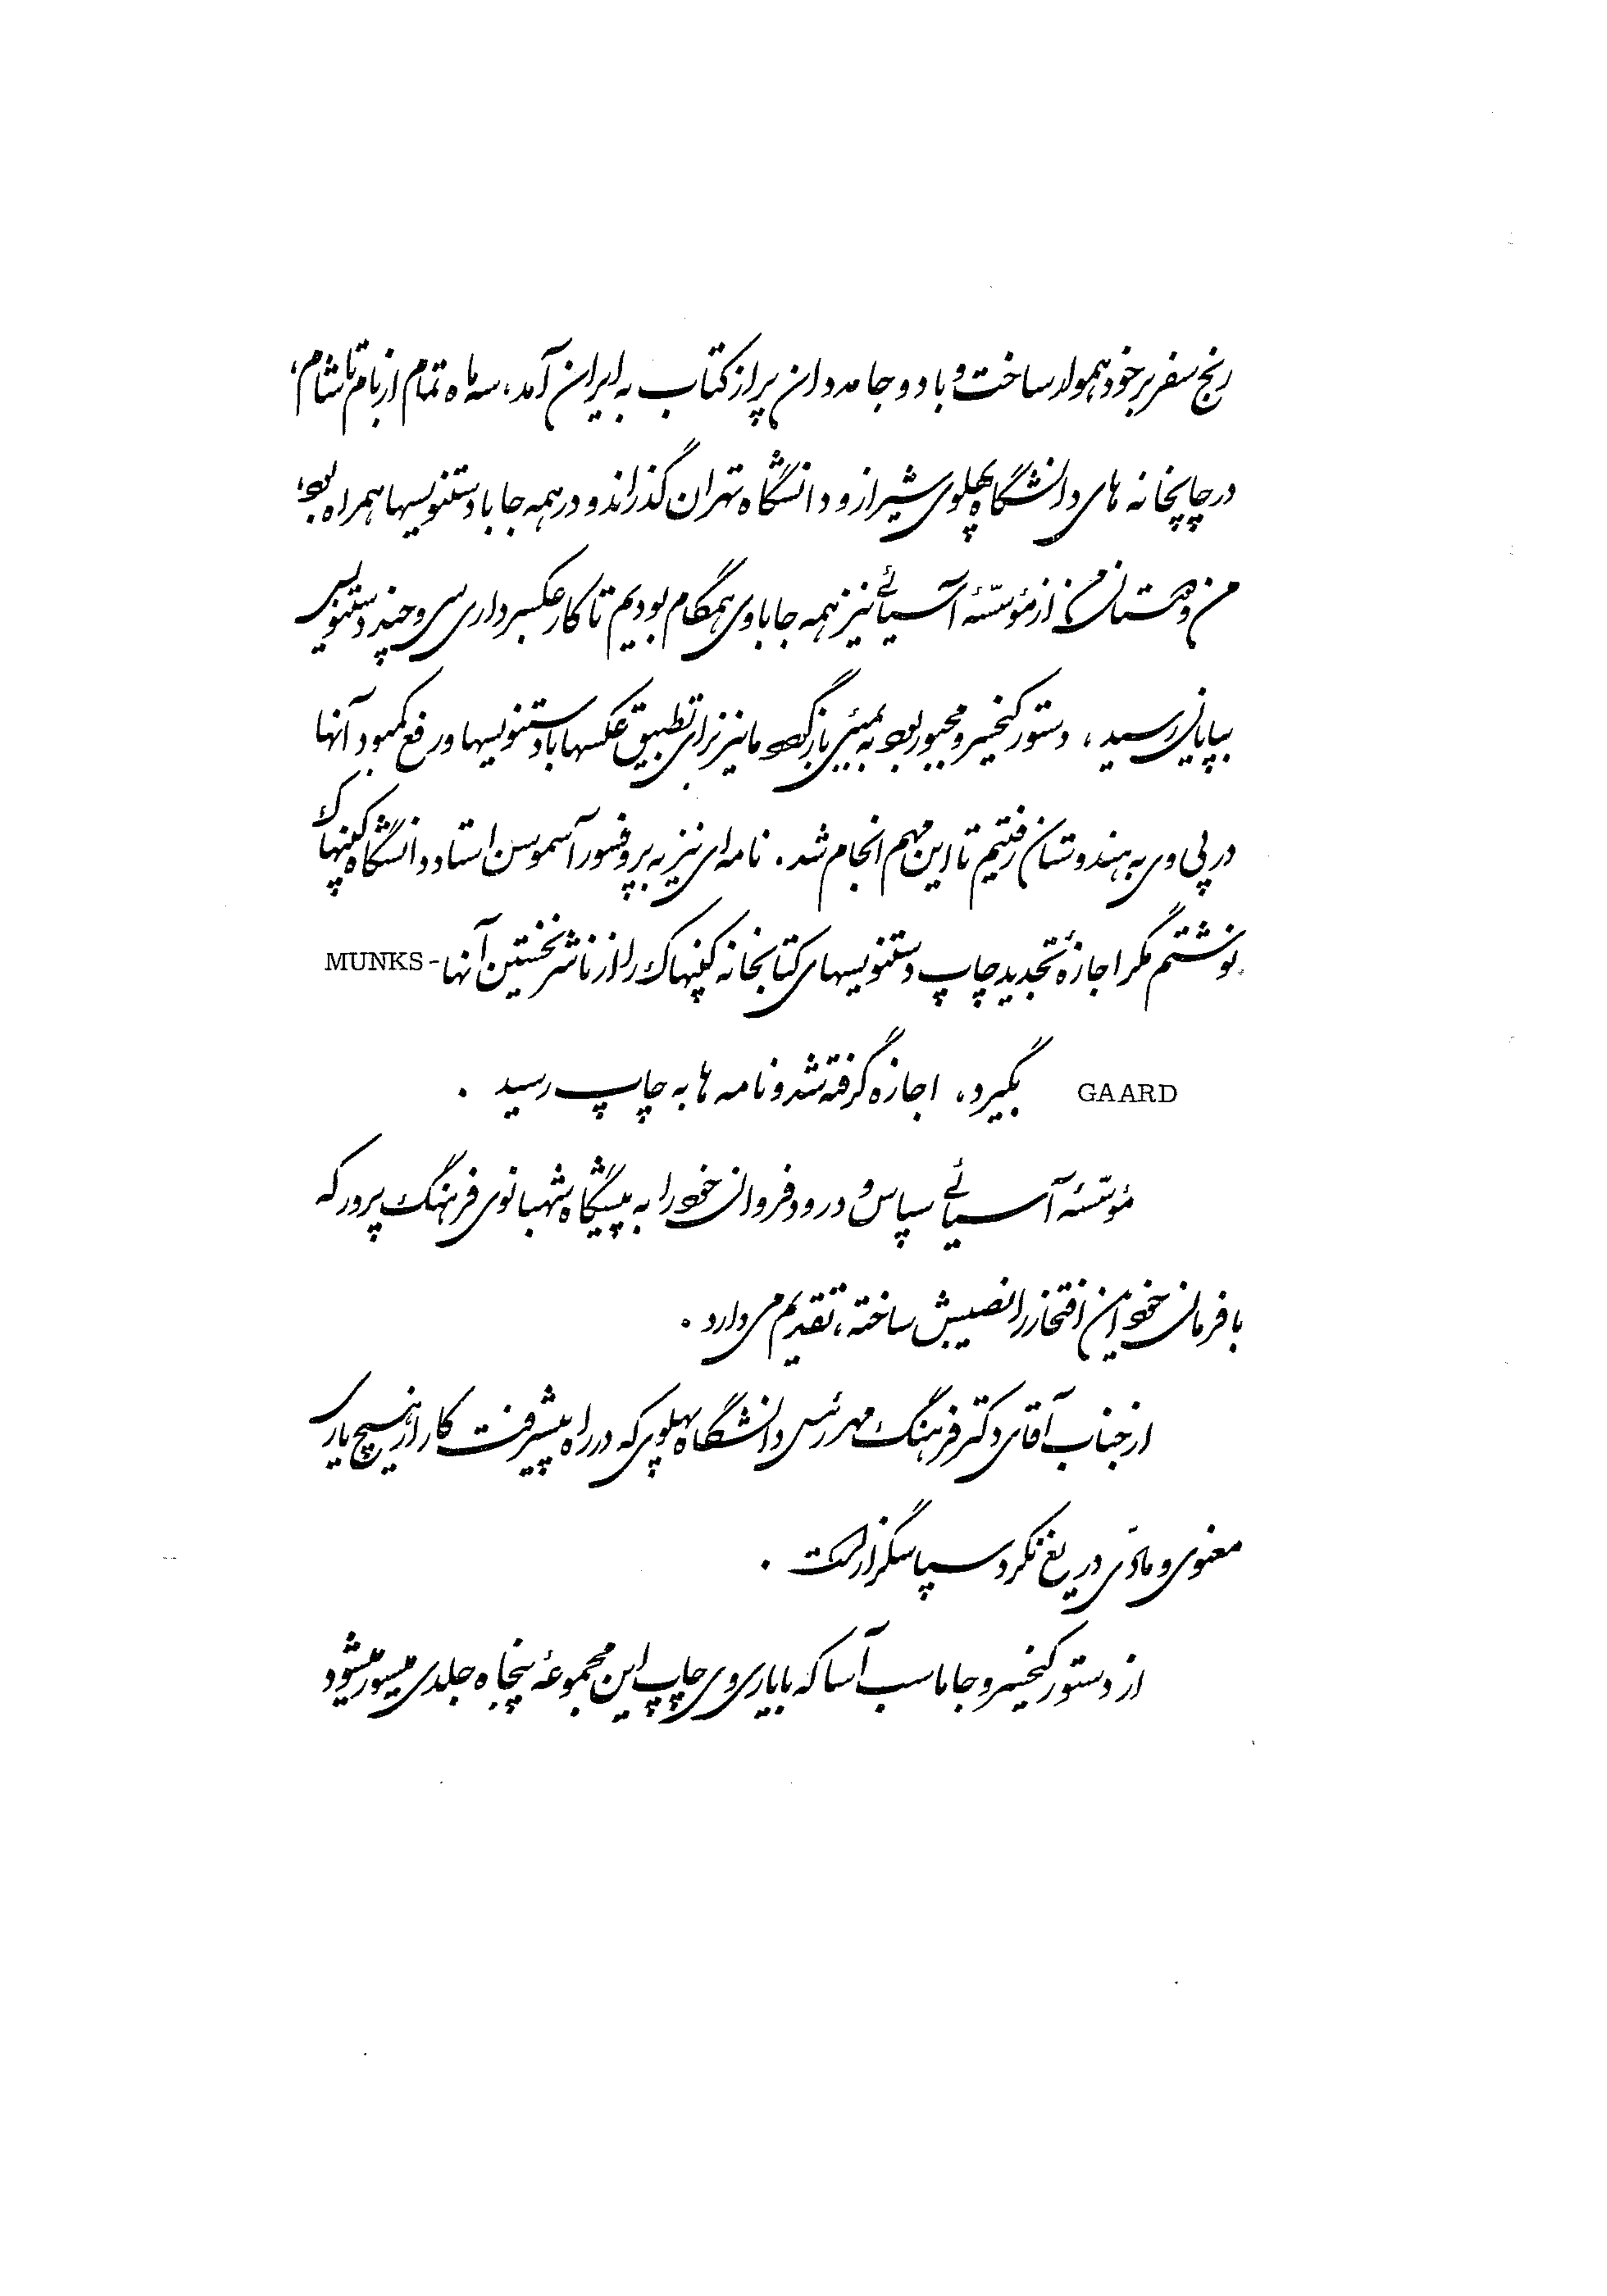 رنج سفر بر خود هموار ساخت و با دو جامه‌دان پر از کتاب به ایران آمد، سه ماه تمام از بام تا شام،
در چاپخانه های دانشگاه پهلوی شیراز و دانشگاه تهران گذراند و در همه جا با دستنویسها همراه بود،
من و همستان من از مؤسّسهٔ آسیائے نیز همه جا با وی همگام بودیم تا کار عکسبرداری سی و چند دستنویس
بپایان رسید، دستور کیخسرو مجبور بود به بمبئی بازگردد ما نیز برای تطبیق عکسها با دستنویسها و رفع کمبود آنها
در پی وی به هندوستان رفتیم تا این مهم انجام شد. نامه‌ای نیز به پروفسور آسموسن استاد دانشگاه کپنهاک
نوشتم مگر اجازهٔ تجدید چاپ دستنویسهای کتابخانه کپنهاک را از ناشر نخستین آنها MUNKS-
GAARD بگیرد، اجازه گرفته شد و نامه ها به چاپ رسید.
مؤسّسهٔ آسیائے سپاس و درود فروان خود را به پیشگاه شهبانوی فرهنگ پرور که
با فرمان خود این افتخار را نصیبش ساخته، تقدیم می‌دارد.
از جناب آقای دکتر فرهنگ مهر رئیس دانشگاه پهلوی که در راه پیشرفت کار از هیچ یاری
معنوی و مادّی دریغ نکرد سپاسگزار است.
از دستور کیخسرو جاماسب آسا که با یاری وی چاپ این مجموعهٔ پنجاه جلدی میسور میشود